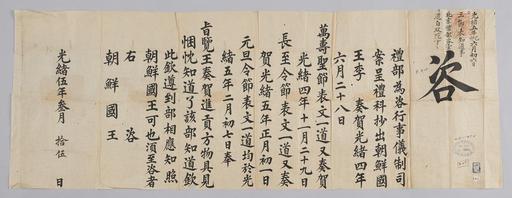 咨
禮部為咨行事儀制司
案呈禮科抄出朝鮮國
王李 奏賀光緒四年
六月二十八日
萬壽聖節表文一道又奏賀
光緒四年十一月二十九日
長至令節表文一道又奏
賀光緒五年正月初一日
元旦令節表文一道均於光
緒五年二月初七日奉
旨覽王奏賀進貢方物具見
悃忱知道了該部知道欽
此欽遵到部相應知照
朝鮮國王可也須至咨者
右 咨
朝鮮國王
光緒伍年叁月 拾伍 日